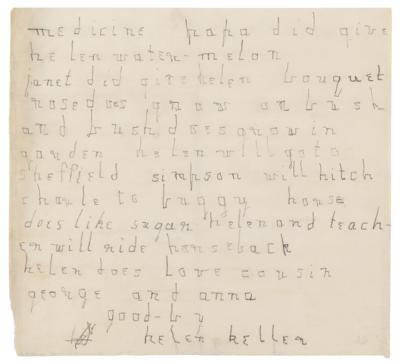 medicine papa did give
helen water-melon
janet did give helen bouquet
rose does grow on bush
and bush does grow in
garden helen will go to
sheffield simpson will hitch
charlie to buggy horse
does like sugar helen and teach-
er will ride horseback
helen does love cousin
george and anna
good-by
helen keller